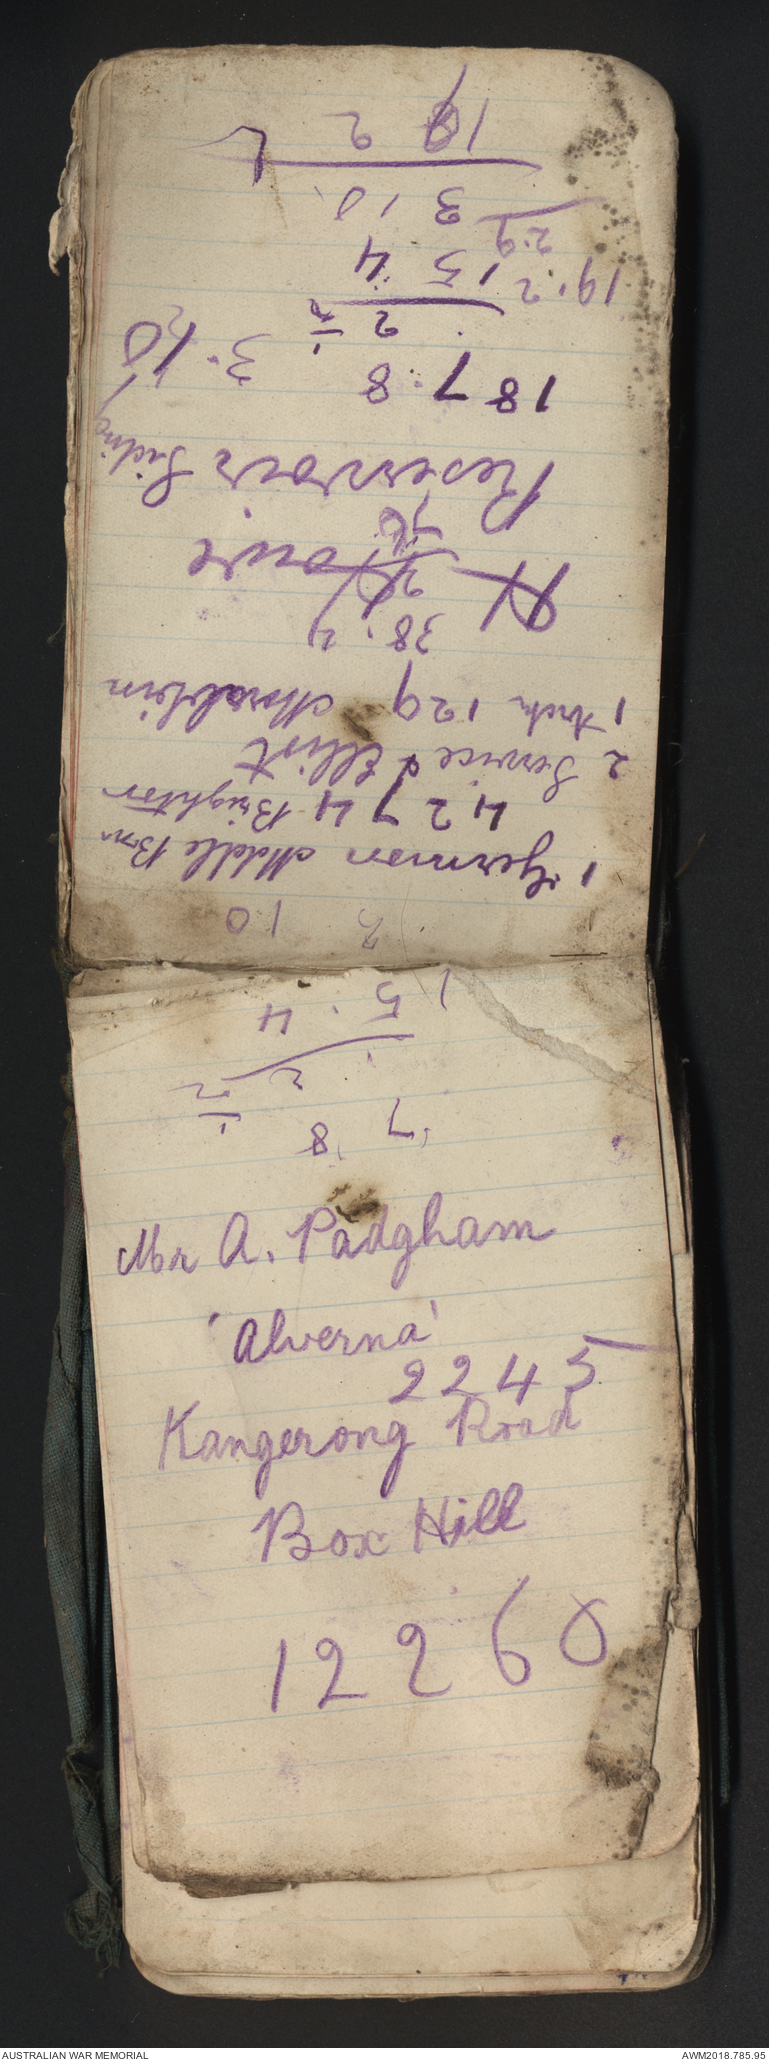 1 German Middle Bn
4274 Brighton
2 Service & Elliot
1 Arch 129 Moralbin
38.4
H Howe
Reservoir Siding
187.8 3.10
2 1/2
19.2 15 4
2.9
3 10
19 2
3 10
15.4
2 1/2
7 8
Mr A. Padgham
'Alverna'
2245
Kangerong Road
Box Hill
12260
AUSTRALIAN WAR MEMORIAL
AWM2018.785.95